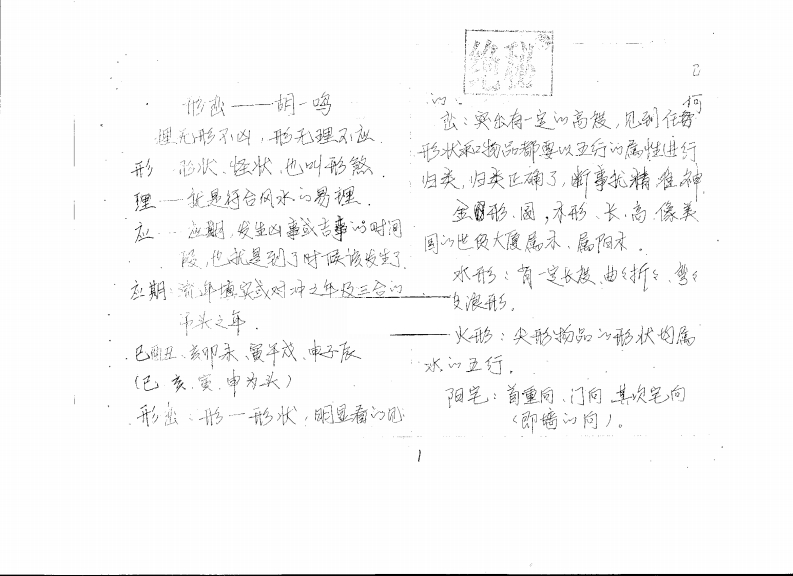 形峦——胡一鸣
理无形不凶，形无理不应
形 形状、怪状，也叫形煞
理——就是符合风水的易理.
应 应期，发生凶事或吉事的时间
段，也就是到了时候该发生了
应期：流年填实或对冲之年及三合的
吊头之年.
巳酉丑、亥卯未、寅午戌、申子辰
（巳、亥、寅、申为头）
形峦：形一形状，明显看的见
的.
峦：突出有一定的高级，见到任何
形状和物品都要以五行的属性进行
归类，归类正确了，断事就精、准、神
金形、圆，木形、长、高、像美
国的世贸大厦属木、属阳木.
水形：有一定长枝、曲曲折折、弯弯
波浪形.
火形：尖形物品的形状均属
火的五行.
阳宅：首重向、门向 其次宅向
（即墙的向）。
1